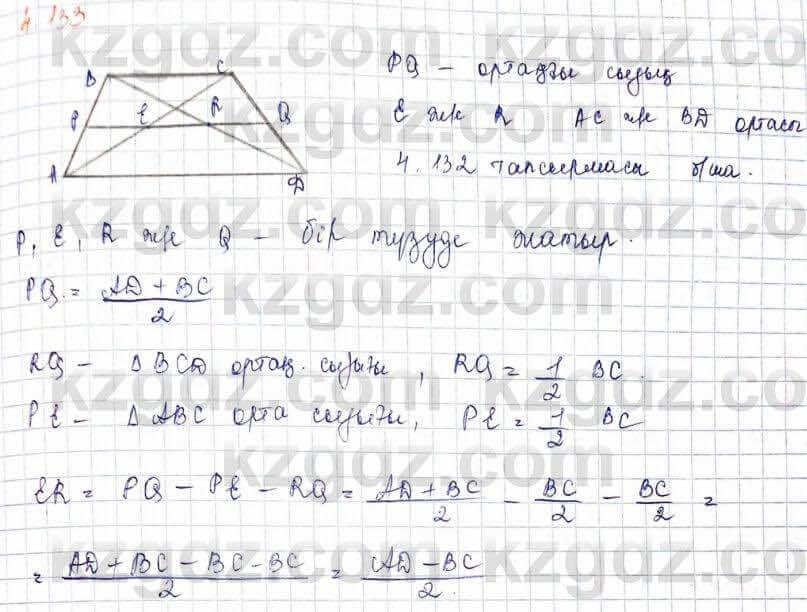 4.133
B C
P E R Q
A D
PQ – ортаңғы сызық
E және R AC және BD ортасы
4.132 тапсырмасы б/ша.
P, E, R және Q – бір түзуде жатыр.
PQ = AD + BC / 2
RQ – Δ BCD ортаң. сызығы, RQ = 1/2 BC.
PE – Δ ABC орта сызығы, PE = 1/2 BC
ER = PQ – PE – RQ = AD + BC / 2 – BC / 2 – BC / 2 =
= AD + BC – BC – BC / 2 = AD – BC / 2.
kzgdz.com